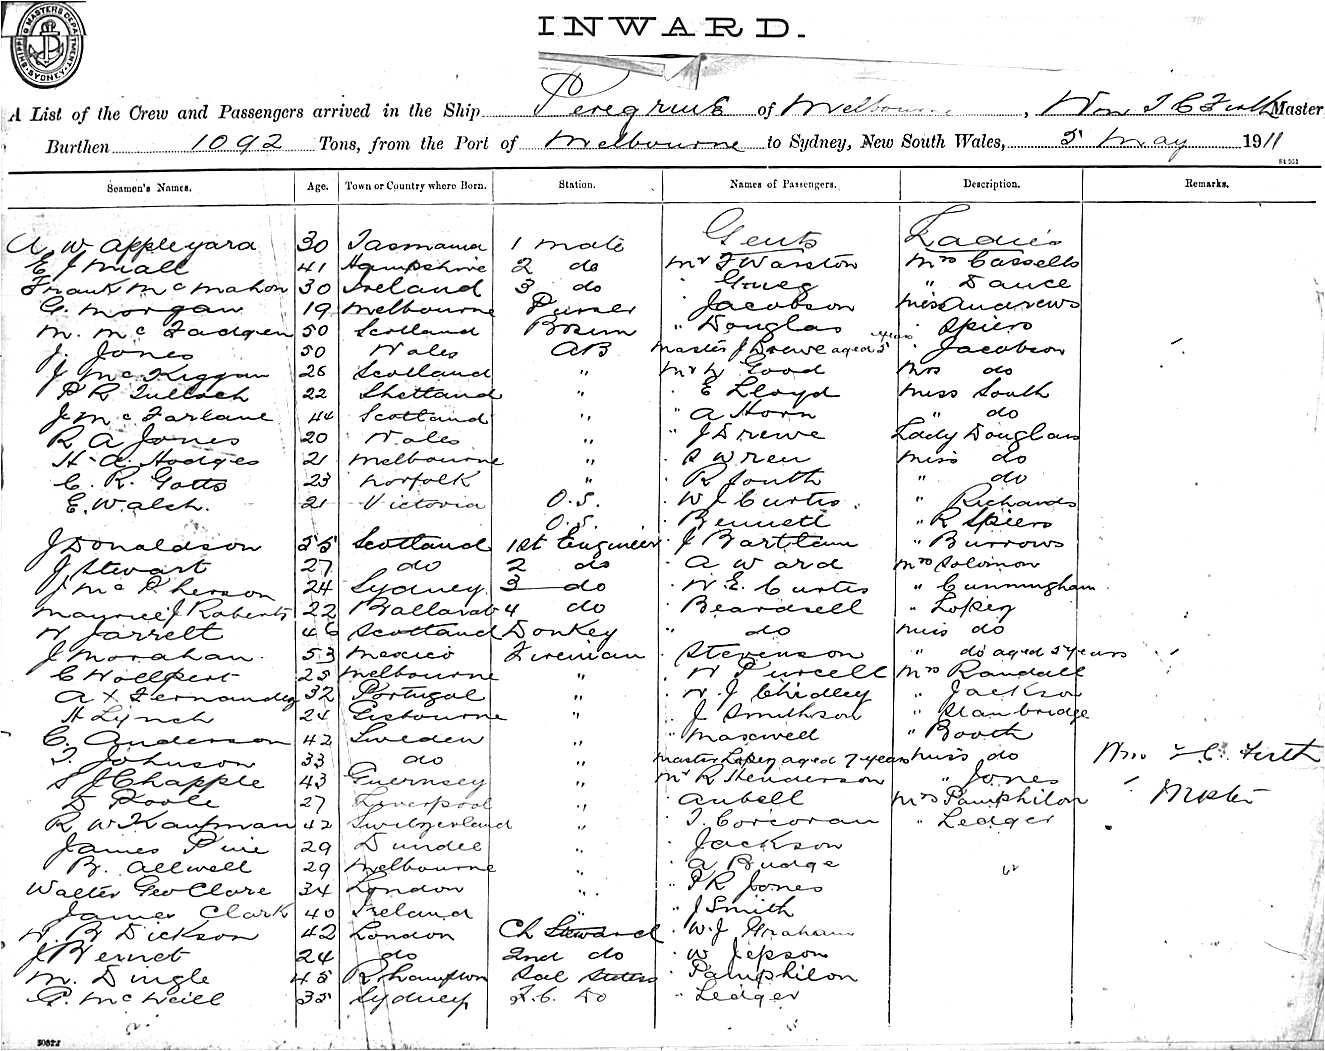 SHIPPING MASTERS DEPARTMENT. SYDNEY
INWARD.
A List of the Crew and Passengers arrived in the Ship Peregrine of Melbourne, Wm T C Firth Master
Burthen 1092 Tons, from the Port of Melbourne to Sydney, New South Wales, 5 May 1911
Seamen's Names. Age. Town or Country where Born. Station. Names of Passengers. Description. Remarks.
Gents Ladies
A W Appleyard 30 Tasmania 1 mate
E J Niall 41 Hampshire 2 do Mr F Warston Mrs Cassells
Frank McMahon 30 Ireland 3 do " Greig " Dance
G. Morgan 19 Melbourne Purser Jacobson Miss Andrews
M. McFadgen 50 Scotland Bosun " Douglas Spiers
J. Jones 50 Wales AB Master J Drewe aged 5 years Jacobson
J McKiggan 26 Scotland " Mr W Good Mrs do
P R Tulloch 22 Shetland " E Lloyd Miss South
J McFarlane 44 Scotland " " A Horn " do
R A Jones 20 Wales " " J Drewe Lady Douglas
H. A. Hodges 21 Melbourne " S Wren Miss do
C. R. Gotts 23 Norfolk " R South " do
E. Walsh. 21 Victoria O.S. W J Curtis " Richards
O.S. Bennett " R Spiers
J Donaldson 55 Scotland 1st Engineer J Bartlam " Burrows
J Stewart 27 do 2 do A Ward Mrs Solomon
J McPherson 24 Sydney 3 do W. E. Curtis " Cunningham
Maurice J Roberts 22 Ballarat 4 do Beardsell " Lopez
W Jarrett 46 Scotland Donkey " do Miss do
J Monahan 53 Mexico Fireman Stevenson " do aged 5 years
C Wollpert 25 Melbourne " W Purcell Mrs Randall
A X Fernandez 32 Portugal " W. J Chidley " Jackson
H Lynch 24 Gisbourne " J Smithson " Stanbridge
C. Anderson 42 Sweden " " Maxwell " Booth
T. Johnson 33 do " Master Lopez aged 7 years Miss do Wm T C. Firth
S J Chapple 43 Guernsey " Mr R Henderson " Jones
D Poole 27 Liverpool " Aubell Mrs Pamphilon Master
R W Kaufman 42 Switzerland " T. Corcoran " Ledger
James Pirie 29 Dundee " Jackson
B. Allwell 29 Melbourne " A Budge
Walter Geo Clare 34 London " " P R Jones
James Clark 40 Ireland " " J Smith
W. B Dickson 42 London Ch Steward W. J Graham
J Bernet 24 do 2nd do W Jepson
M. Dingle 45 R. Hampton Sal Pamphilon
P. McNeill 35 Sydney F. C. do " Ledger